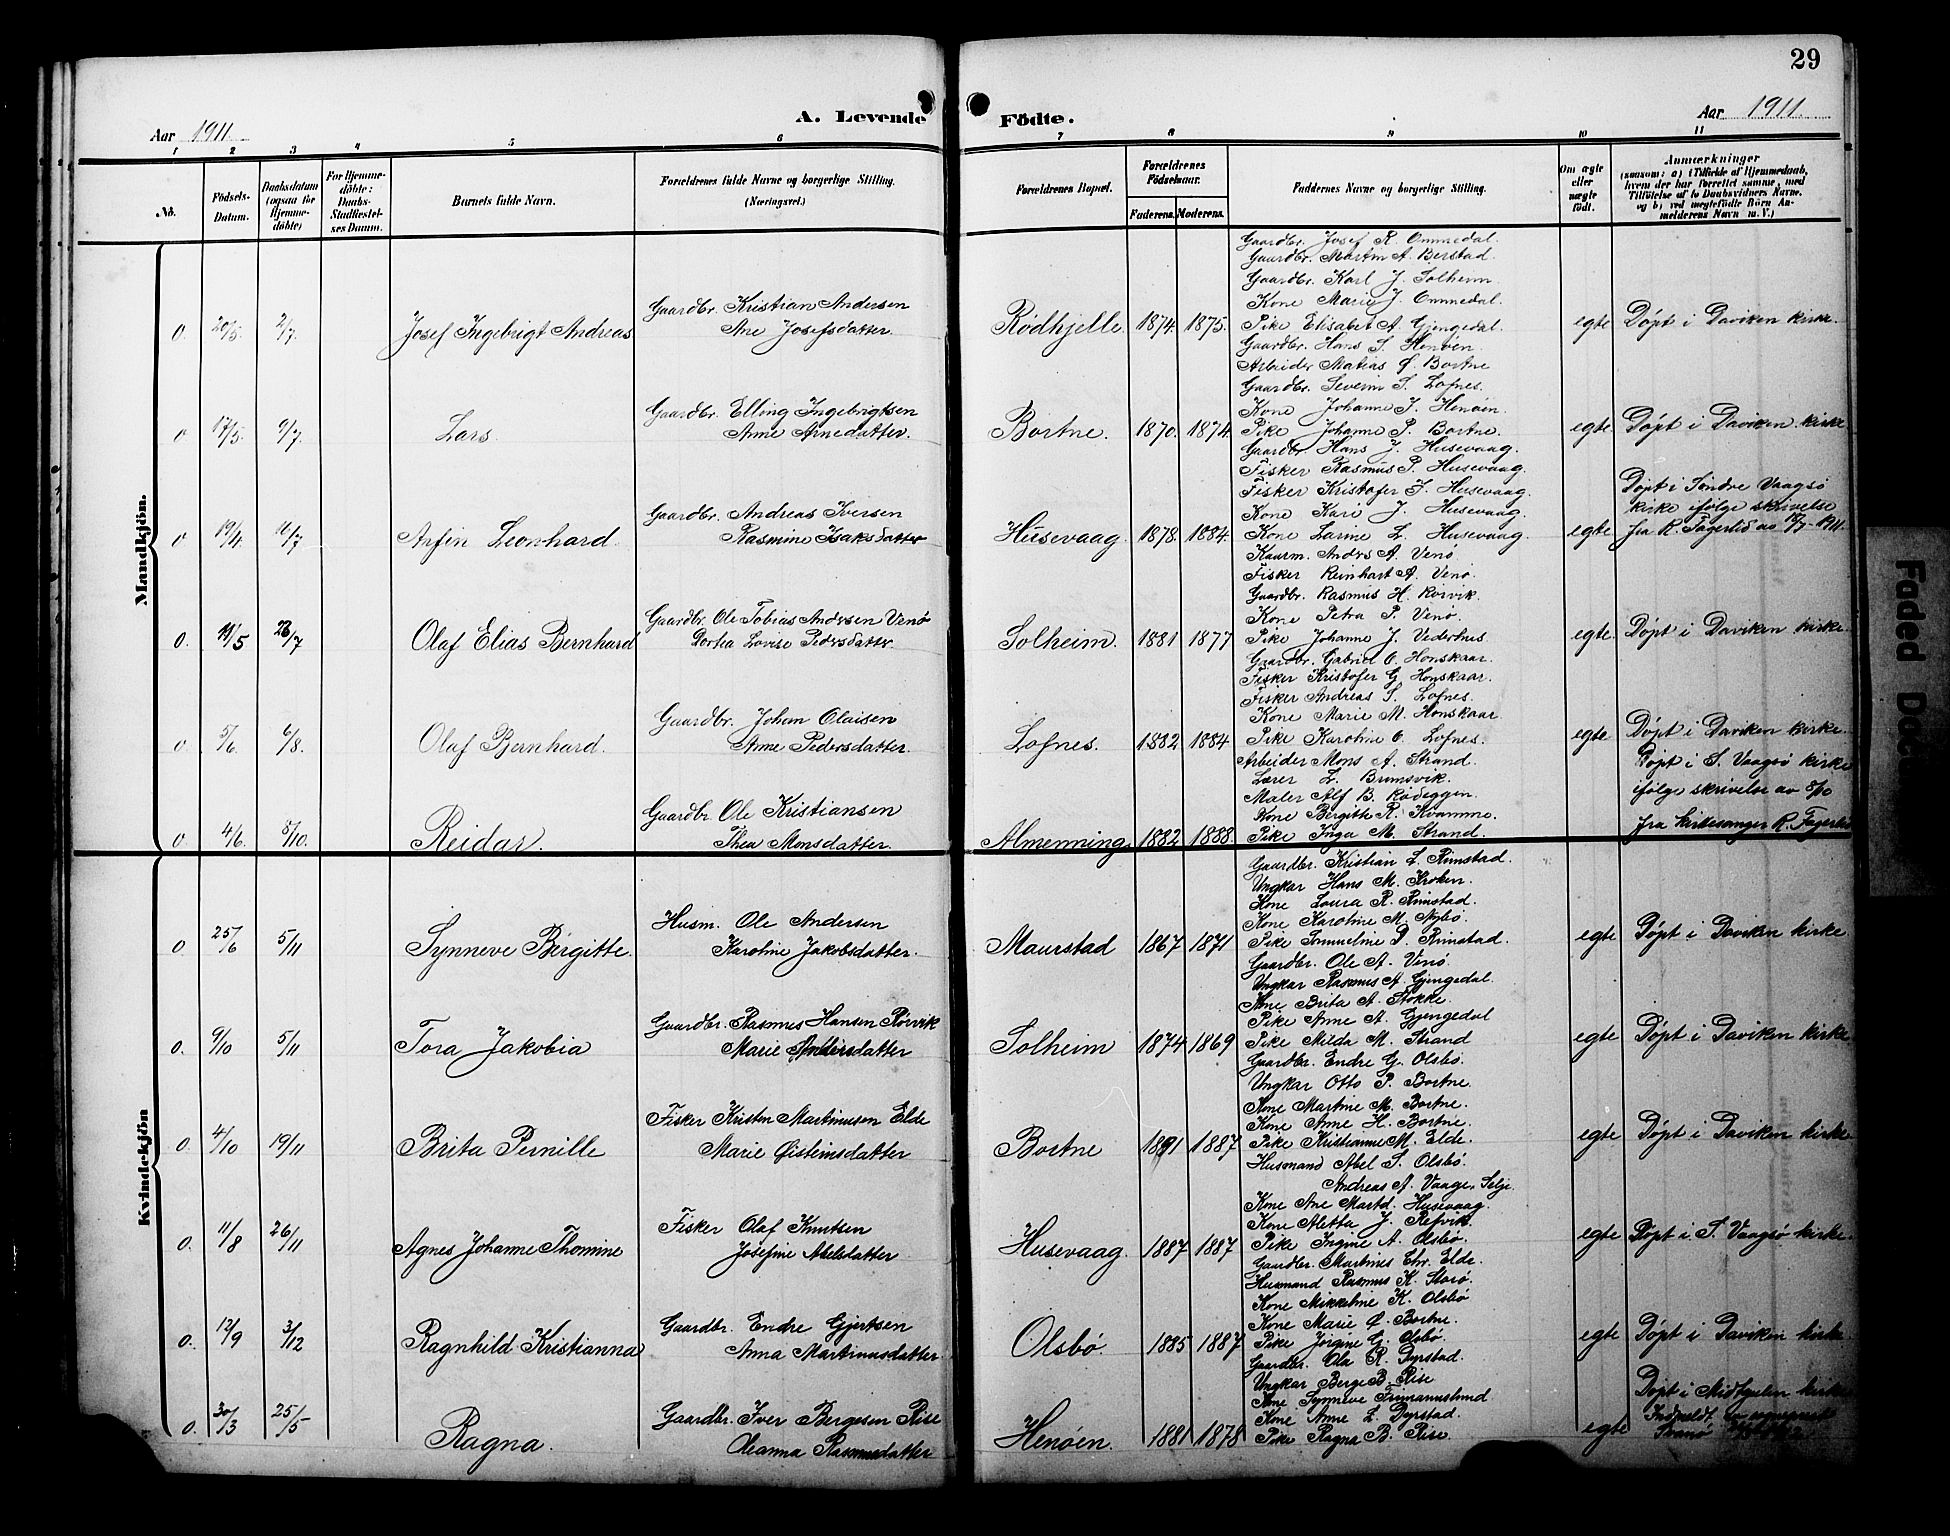 29
Aar 1911.
A. Levende Födte.
Aar 1911.
1 2 3 4 5 6 7 8 9 10 11
No.
Födsels-Datum.
Daabsdatum (ogsaa for Hjemme-döbte)
For Hjemme-döbte: Daabs-Stadfæstel-ses Datum.
Barnets fulde Navn.
Forældrenes fulde Navne og borgerlige Stilling.
(Næringsvei.)
Forældrenes Bopæl.
Forældrenes Födselsaar.
Faderens. Moderens.
Faddernes Navne og borgerlige Stilling.
Om ægte eller uægte födt.
Anmærkninger
(saasom: a) i Tilfælde af Hjemmedaab,
hvem der har forrettet samme, med
Tilföielse af to Daabsvidners Navne.
og b) ved uægtefödte Börn An-
melderens Navn m. V.)
Mandkjön.
0. 20/5. 2/7. Josef Ingebrigt Andreas
Gaardbr. Kristian Andersen
Ane Josefsdatter.
Rödhjelle. 1874. 1875.
Gaardbr. Josef R. Ommedal.
Gaardbr. Martin A. Berstad.
Gaardbr. Karl J. Solheim
Kone Marie J. Ommedal.
Pike Elisabet A. Gjengedal.
egte Döpt i Daviken kirke.
0 17/5. 9/7. Lars.
Gaardbr. Elling Ingebrigtsen
Anne Arnedatter.
Bortne. 1870. 1874.
Gaardbr. Hans S. Henöen.
Arbeider Matias Ø. Bortne
Gaardbr. Severin S. Lofnes.
Kone Johanne J. Henöen.
Pike Johanne P. Bortne.
egte Döpt i Daviken kirke
0 19/4. 16/7 Arfin Leonhard.
Gaardbr. Andreas Iversen
Rasmine Isaksdatter
Husevaag. 1878. 1884.
Gaardbr. Hans J. Husevaag.
Fisker Rasmus P. Husevaag.
Fisker Kristofer J. Husevaag.
Kone Kari J. Husevaag.
Kone Larine L. Husevaag.
egte
Döpt i Söndre Vaagsö
kirke ifölge skrivelse
fra R. Fagerlid av 17/7-1911.
0. 11/5 23/7 Olaf Elias Bernhard
Gaardbr. Ole Tobias Andersen Venö
Dortea Lovise Pedersdatter.
Solheim. 1881 1877
Kaarm. Anders A. Venö
Fisker Reinhart A. Venö.
Gaardbr. Rasmus H. Rörvik.
Kone Petra P. Venö.
Pike Johanne J. Vederhus
egte. Döpt i Daviken kirke.
0 5/6. 6/8. Olaf Bjernhard.
Gaardbr. Johan Olaisen
Anne Pedersdatter.
Lofnes. 1882 1884
Gaardbr. Gabriel O. Honskaar.
Fisker Kristofer G. Honskaar.
Fisker Andreas S. Lofnes.
Kone Marie M. Honskaar
Pike Karoline O. Lofnes.
egte Döpt i Daviken kirke.
0 4/6. 8/10. Reidar.
Gaardbr Ole Kristiansen
Thea Monsdatter.
Almenning. 1882 1888.
Arbeider Mons A. Strand.
Lærer L. Brunsvik.
Maler Alf B. Rödeggen.
Kone Bergitte R. Kvamme.
Pike Inga M. Strand.
Döpt i S. Vaagsö kirke
ifölge skrivelse av 8/10
fra kirkesanger R. Fagerlid
Kvindekjön
0 25/6 5/11 Synneve Birgitte.
Husm. Ole Andersen
Karoline Jakobsdatter.
Maurstad 1867 1871
Gaardbr. Kristian L. Rimstad.
Ungkar Hans M. Kroken.
Kone Laura R. Rimstad.
Kone Karoline M. Nybö.
Pike Samueline P. Rimstad.
egte Döpt i Daviken kirke
0. 9/10 5/11 Tora Jakobia
Gaardbr. Rasmus Hansen Rörvik
Marie Andersdatter
Solheim 1874 1869
Gaardbr. Ole A. Venö.
Ungkar Rasmus A. Gjengedal.
Kone Brita A. Stokke.
Pike Anne A. Gjengedal
Pike Milda M. Strand
egte Döpt i Daviken kirke
0. 4/10 19/11 Brita Pernille
Fisker Kristen Martinusen Elde
Marie Øisteinsdatter
Bortne 1891 1887
Gaardbr. Endre G. Olsbö.
Ungkar Otto P. Bortne.
Kone Martine M. Bortne.
Kone Anne H. Bortne.
Pike Kristianne M. Elde.
egte Döpt i Daviken kirke
0. 11/8 26/11 Agnes Johanne Thomine
Fisker Olaf Knutsen
Josefine Abelsdatter
Husevaag. 1887 1887
Husmand Abel S. Olsbö.
Andreas A. Vaage, Selje.
Kone Ane Martd. Husevaag.
Kone Aletta J. Refvik.
Pike Ingine A. Olsbö.
egte Döpt i S. Vaagsö kirke.
0. 12/9 3/12 Ragnhild Kristianna
Gaardbr. Endre Gjertsen
Anna Martinusdatter.
Olsbö. 1885 1887
Gaardbr. Martines Chr. Elde.
Husmand Rasmus K. Storö.
Kone Mikkeline K. Olsbö
Kone Marie Ø. Bortne.
Pike Jörgine G. Olsbö.
egte Döpt i Daviken kirke.
0. 30/3 25/5 Ragna.
Gaardbr. Iver Bergesen Rise
Oleanna Rasmusdatter
Henöen. 1881 1878
Gaardbr. Ola R. Dyrstad.
Ungkar Berge B. Rise
Kone Synneve
Kone Anne L. Dyrstad.
Pike Ragna B. Rise
egte
Döpt i Midtgulen kirke
Indmeldt
Faded Doc